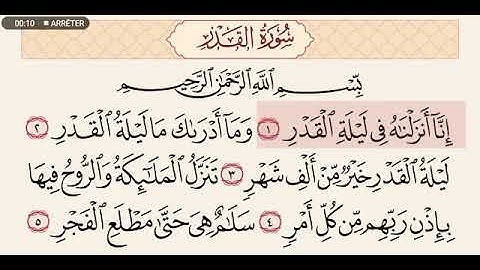 00:10 ■ ARRÊTER
سُورَةُ ٱلْقَدْرِ
بِسْمِ ٱللَّهِ ٱلرَّحْمَٰنِ ٱلرَّحِيمِ
إِنَّآ أَنزَلْنَٰهُ فِى لَيْلَةِ ٱلْقَدْرِ ١ وَمَآ أَدْرَىٰكَ مَا لَيْلَةُ ٱلْقَدْرِ ٢
لَيْلَةُ ٱلْقَدْرِ خَيْرٌ مِّنْ أَلْفِ شَهْرٍ ٣ تَنَزَّلُ ٱلْمَلَٰٓئِكَةُ وَٱلرُّوحُ فِيهَا
بِإِذْنِ رَبِّهِم مِّن كُلِّ أَمْرٍ ٤ سَلَٰمٌ هِىَ حَتَّىٰ مَطْلَعِ ٱلْفَجْرِ ٥